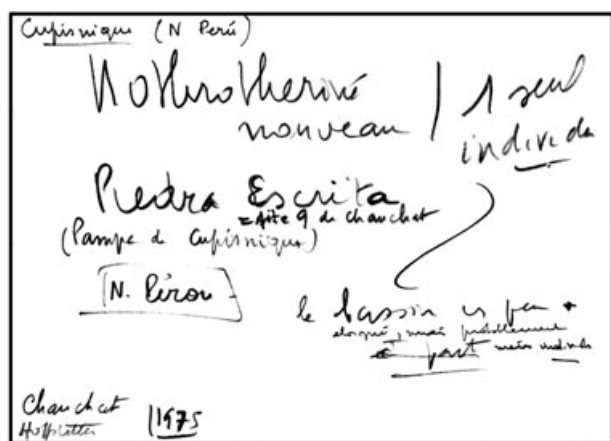 Cupisnique (N Perú)
Nothrotheriné
nouveau
1 seul
individu
Piedra Escrita
= site 9 de Chauchat
(Pampa de Cupisnique)
N. Pérou
le bassin
mais probablement
part même individu
Chauchat
Hoffstetter
1975